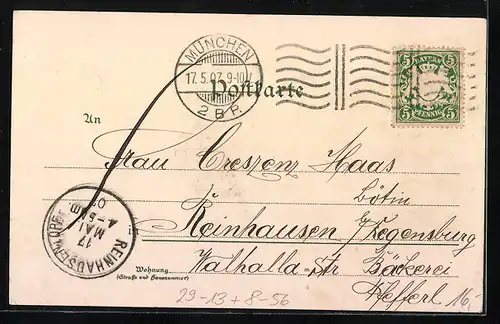 MÜNCHEN
17. 5. 07. 9-10V
2 B.P.
BAYERN
5 5
5 5
PFENNIG
Postkarte
An
Frau Creszenz Haas
Bötin
Reinhausen b/Regensburg
REINHAUSEN
17
MAI
4-5
07
Walhalla-Str Bäckerei
Wohnung
(Straße und Hausnummer)
Hefferl
29-13+8-56
16,-